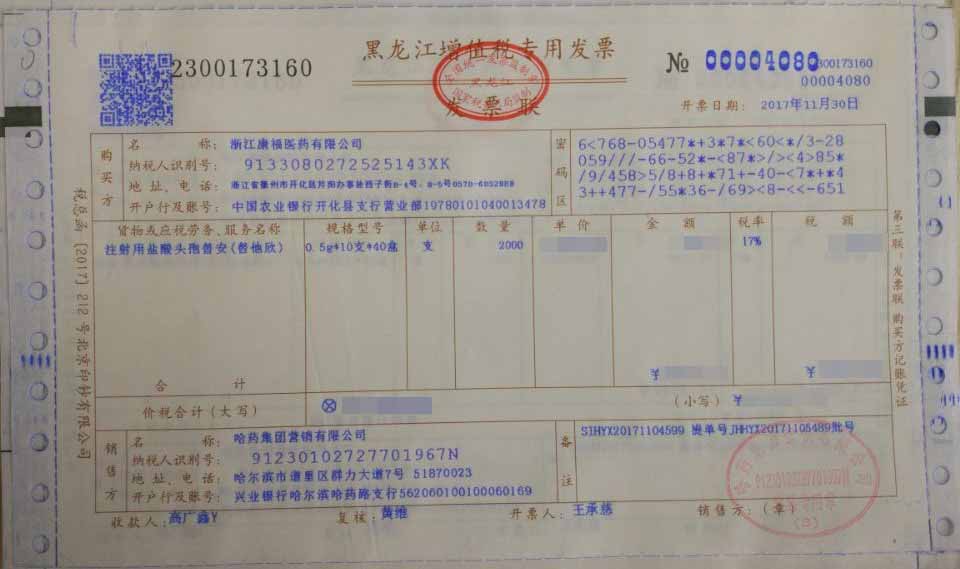 2300173160
黑龙江增值税专用发票
发票联
全国统一发票监制章
黑龙江
№ 00004080
2300173160
00004080
开票日期: 2017年11月30日
购买方
名 称: 浙江康福医药有限公司
纳税人识别号: 91330802725251​43XK
地 址、电 话:
开户行及账号: 中国农业银行开化县支行营业部19780101040013478
密码区
6<768-05477*+3*7*<60<*/3-28
059///-66-52*-<87*>/><4>85*
/9/458>5/8+8+*71+-40-<7*+*4
3++477-/55*36-/69><8-<<-651
货物或应税劳务、服务名称 规格型号 单位 数 量 单 价 金 额 税率 税 额
注射用盐酸头孢替安(替他欣) 0.5g*10支*40盒 支 2000 17%
¥ ¥
合 计
价税合计(大写) ⊗ (小写) ¥
销售方
名 称: 哈药集团营销有限公司
纳税人识别号: 91230102727701967N
地 址、电 话: 哈尔滨市道里区群力大道7号 51870023
开户行及账号: 兴业银行哈尔滨哈药路支行562060100100060169
备注
SIHYX20171104599 货单号JHHYX20171105489批号
收款人: 高广鑫Y 复核: 黄维 开票人: 王承慈 销售方:(章)
税总函〔2017〕212号北京印钞有限公司
第三联:发票联 购买方记账凭证